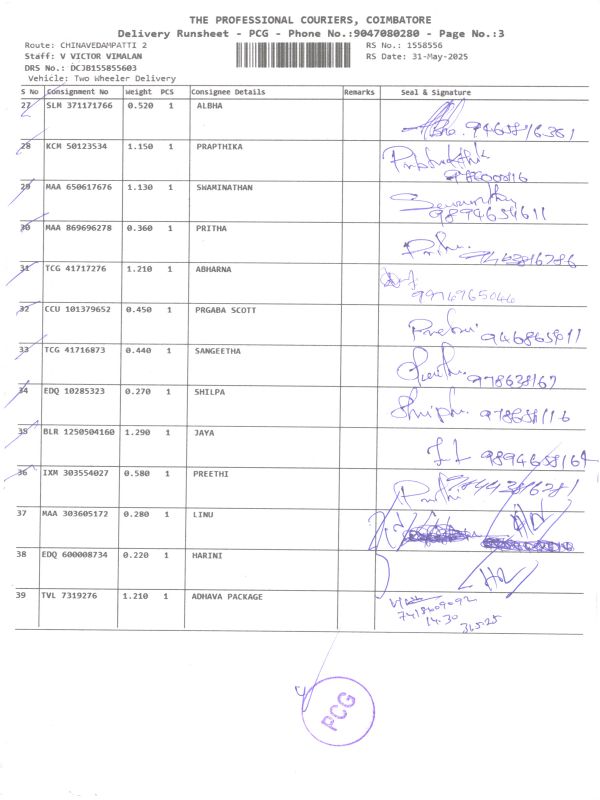 THE PROFESSIONAL COURIERS, COIMBATORE
Delivery Runsheet - PCG - Phone No.:9047080280 - Page No.:3
Route: CHINAVEDAMPATTI 2
RS No.: 1558556
Staff: V VICTOR VIMALAN
RS Date: 31-May-2025
DRS No.: DCJB155855603
Vehicle: Two Wheeler Delivery
S No Consignment No Weight PCS Consignee Details Remarks Seal & Signature
27 SLM 371171766 0.520 1 ALBHA
28 KCM 50123534 1.150 1 PRAPTHIKA
29 MAA 650617676 1.130 1 SWAMINATHAN 9894654611
30 MAA 869696278 0.360 1 PRITHA
31 TCG 41717276 1.210 1 ABHARNA 9976965046
32 CCU 101379652 0.450 1 PRGABA SCOTT
33 TCG 41716873 0.440 1 SANGEETHA
34 EDQ 10285323 0.270 1 SHILPA
35 BLR 1250504160 1.290 1 JAYA
36 IXM 303554027 0.580 1 PREETHI
37 MAA 303605172 0.280 1 LINU
38 EDQ 600008734 0.220 1 HARINI
39 TVL 7319276 1.210 1 ADHAVA PACKAGE
7418609092
14.30
PCG